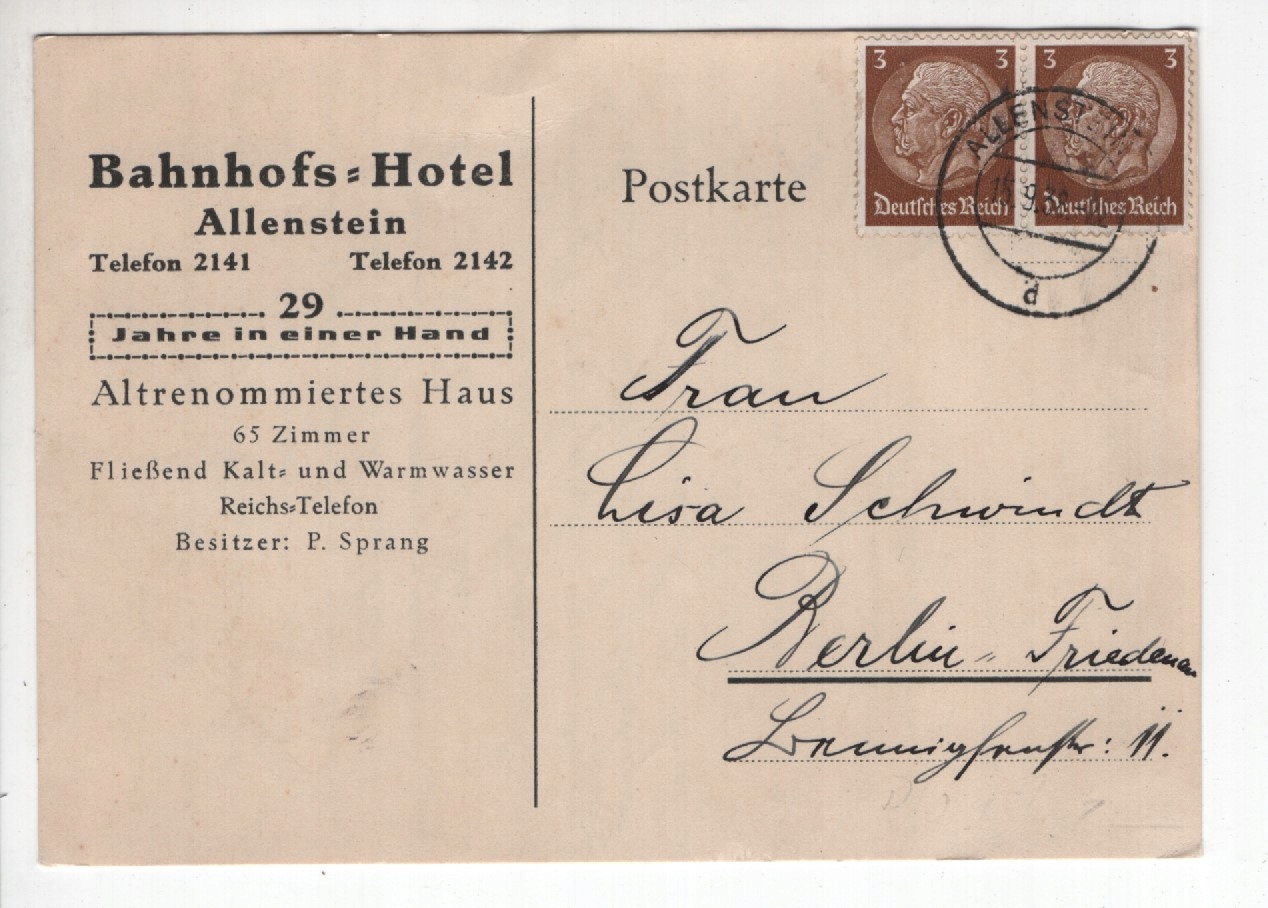 Bahnhofs=Hotel
Allenstein
Telefon 2141 Telefon 2142
29
Jahre in einer Hand
Altrenommiertes Haus
65 Zimmer
Fließend Kalt= und Warmwasser
Reichs=Telefon
Besitzer: P. Sprang
Postkarte
3 3
Deutsches Reich
3 3
Deutsches Reich
ALLENSTEIN
d
Frau
Lisa Schwindt
Berlin= Friedenau
11.